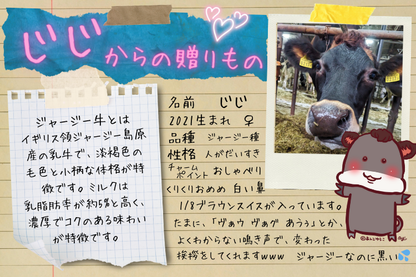 じじからの贈りもの
ジャージー牛とは
イギリス領ジャージー島原
産の乳牛で、淡褐色の
毛色と小柄な体格が特
徴です。ミルクは
乳脂肪率が約5%と高く、
濃厚でコクのある味わい
が特徴です。
名前 じじ
2021生まれ ♀
品種 ジャージー種
性格 人がだいすき
チャームポイント おしゃべり
くりくりおめめ 白い鼻
1/8ブラウンスイスが入っています。
たまに、「ヴァゥ ヴァグ あぅぅ」とか、
よくわからない鳴き声で、変わった
挨拶をしてくれますwww
ジャージーなのに黒い